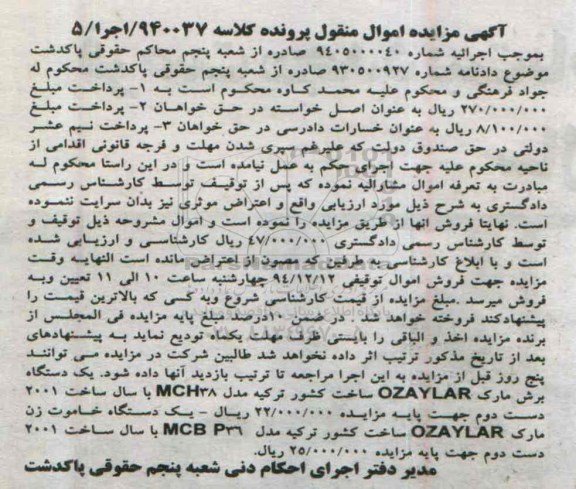 آگهی مزایده اموال منقول پرونده کلاسه ۹۴۰۰۳۷/اجرا/۵
بموجب اجرائیه شماره ۹۴۰۵۰۰۰۰۴۰ صادره از شعبه پنجم محاکم حقوقی پاکدشت
موضوع دادنامه شماره ۹۳۰۵۰۰۹۲۷ صادره از شعبه پنجم حقوقی پاکدشت محکوم له
جواد فرهنگی و محکوم علیه محمد کاوه محکوم است به ۱- پرداخت مبلغ
۲۷۰/۰۰۰/۰۰۰ ریال به عنوان اصل خواسته در حق خواهان ۲- پرداخت مبلغ
۸/۱۰۰/۰۰۰ ریال به عنوان خسارات دادرسی در حق خواهان ۳- پرداخت نیم عشر
دولتی در حق صندوق دولت که علیرغم سپری شدن مهلت و فرجه قانونی اقدامی از
ناحیه محکوم علیه جهت اجرای حکم به عمل نیامده است و در این راستا محکوم له
مبادرت به تعرفه اموال مشارالیه نموده که پس از توقیف توسط کارشناس رسمی
دادگستری به شرح ذیل مورد ارزیابی واقع و اعتراض موثری نیز بدان سرایت ننموده
است. نهایتا فروش آنها از طریق مزایده را نموده است و اموال مشروحه ذیل توقیف و
توسط کارشناس رسمی دادگستری ۴۷/۰۰۰/۰۰۰ ریال کارشناسی و ارزیابی شده
است و با ابلاغ کارشناسی به طرفین که مصون از اعتراض مانده است النهایه وقت
مزایده جهت فروش اموال توقیفی ۹۴/۱۲/۱۲ چهارشنبه ساعت ۱۰ الی ۱۱ تعیین وبه
فروش میرسد .مبلغ مزایده از قیمت کارشناسی شروع وبه کسی که بالاترین قیمت را
پیشنهادکند فروخته خواهد شد . درصمن ۱۰درصد مبلغ پایه مزایده فی المجلس از
برنده مزایده اخذ و الباقی را بایستی ظرف مهلت یکماه تودیع نماید به پیشنهادهای
بعد از تاریخ مذکور ترتیب اثر داده نخواهد شد طالبین شرکت در مزایده می توانند
پنج روز قبل از مزایده به این اجرا مراجعه تا ترتیب بازدید آنها داده شود. یک دستگاه
برش مارک OZAYLAR ساخت کشور ترکیه مدل MCH۳۸ با سال ساخت ۲۰۰۱
دست دوم جهت پایه مزایده ۲۲/۰۰۰/۰۰۰ ریال - یک دستگاه خاموت زن
مارک OZAYLAR ساخت کشور ترکیه مدل MCB P۳۶ با سال ساخت ۲۰۰۱
دست دوم جهت پایه مزایده ۲۵/۰۰۰/۰۰۰ ریال.
مدیر دفتر اجرای احکام دنی شعبه پنجم حقوقی پاکدشت